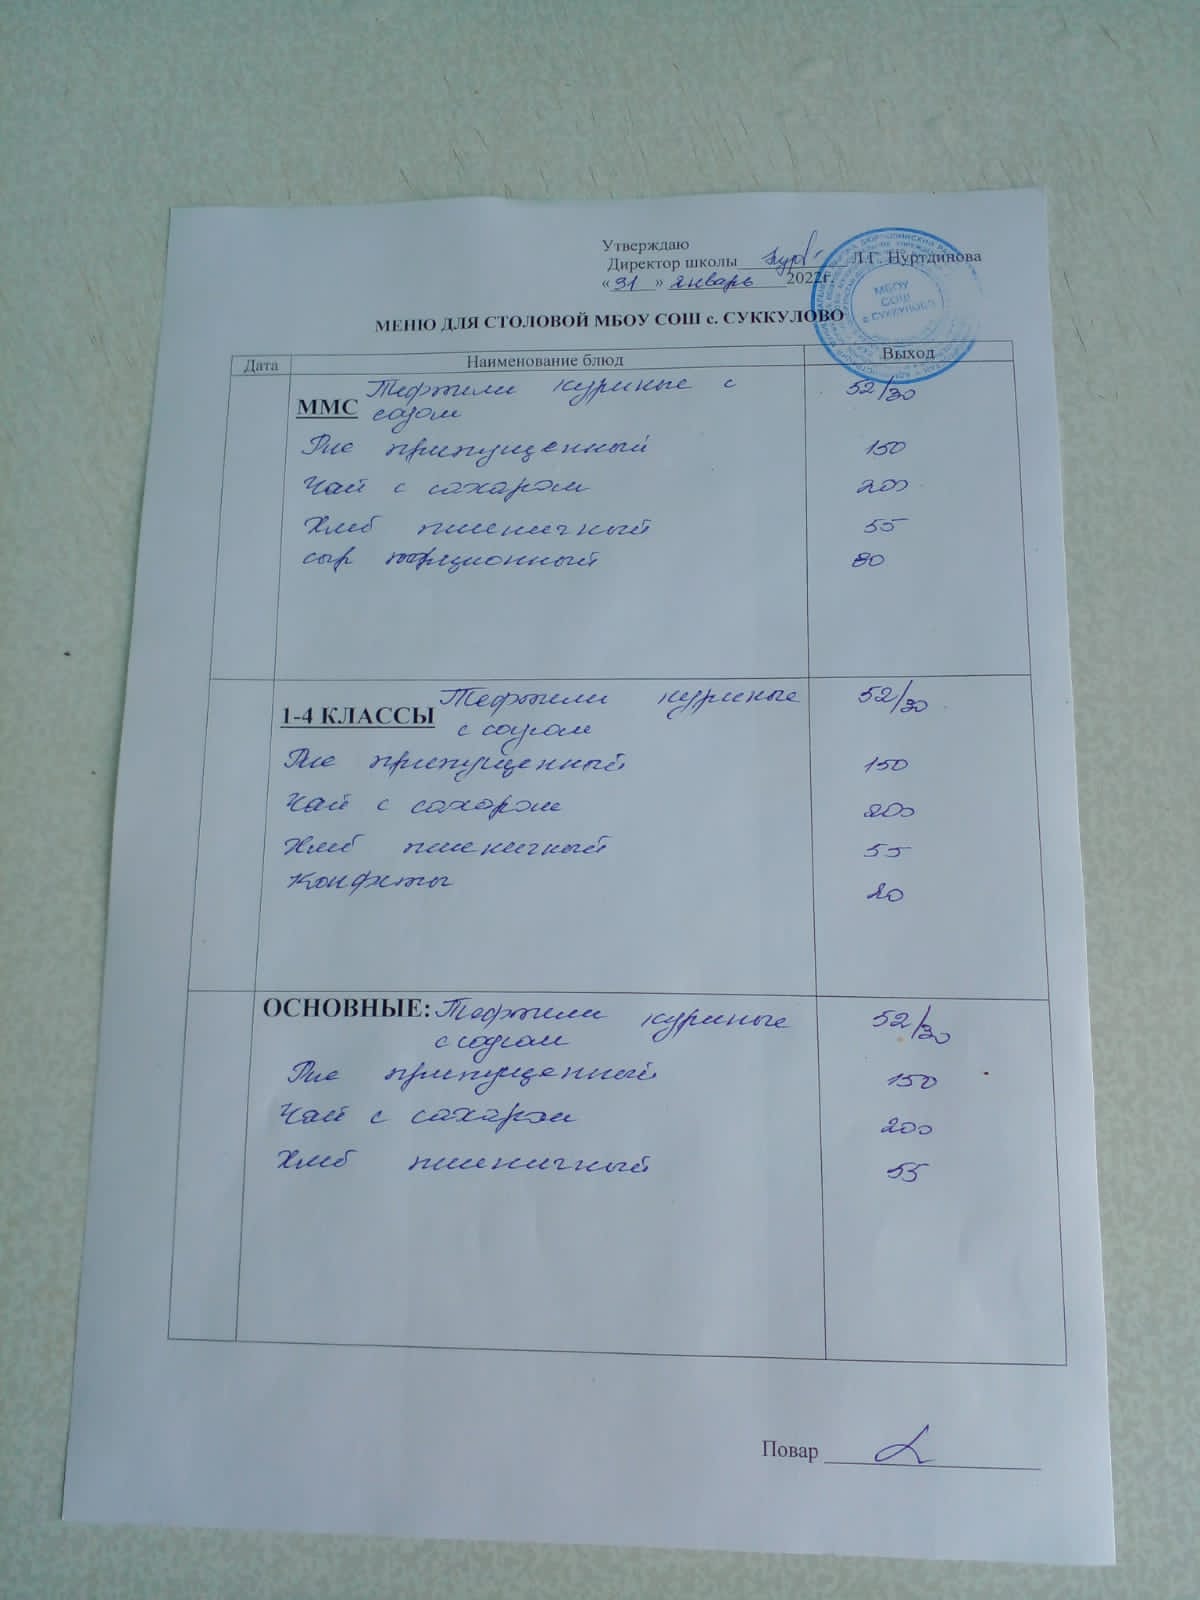 Утверждаю
Директор школы Л.Г. Нуртдинова
« 31 » январь 2022г.
МБОУ
СОШ
с СУККУЛОВО
МЕНЮ ДЛЯ СТОЛОВОЙ МБОУ СОШ с. СУККУЛОВО
Дата Наименование блюд Выход
ММС Тефтели куриные с 52/30
соусом
Рис припущенный 150
Чай с сахаром 200
Хлеб пшеничный 55
сыр порционный
1-4 КЛАССЫ Тефтели куриные 52/30
с соусом
Рис припущенный 150
Чай с сахаром 200
Хлеб пшеничный 55
Конфеты 20
ОСНОВНЫЕ: Тефтели куриные 52/30
с соусом
Рис припущенный 150
Чай с сахаром 200
Хлеб пшеничный 55
Повар